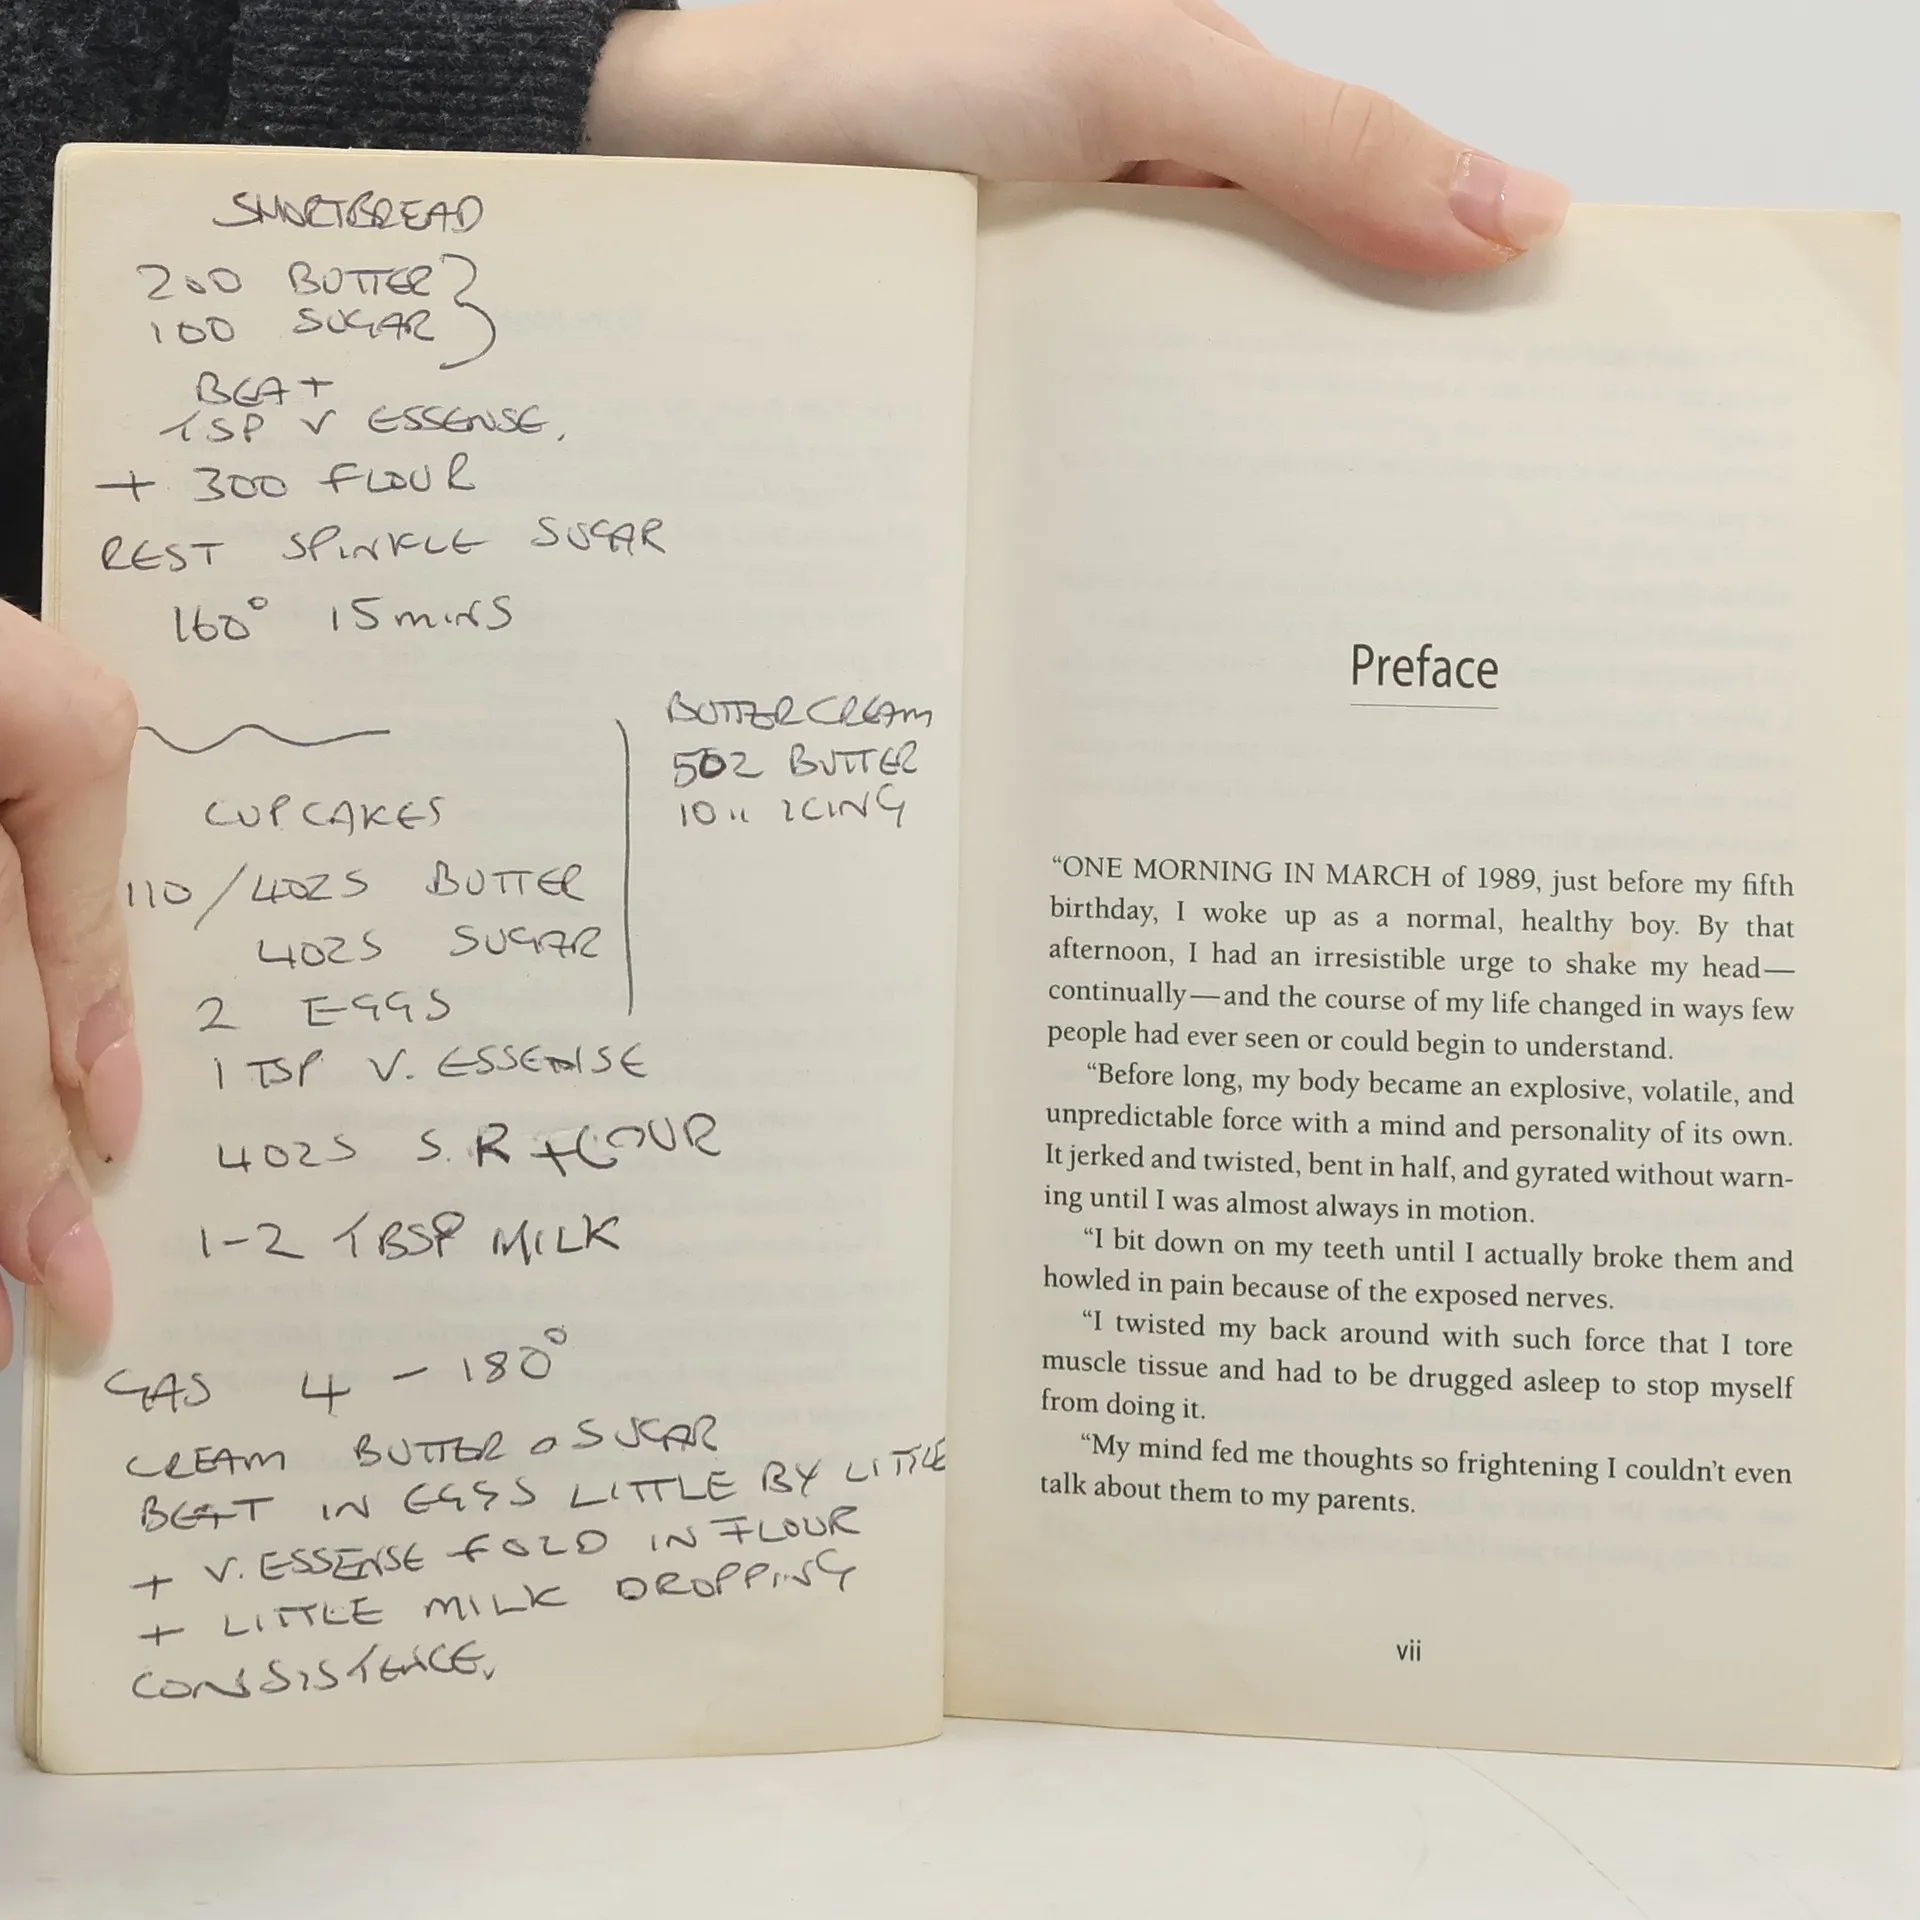 SHORTBREAD
200 BUTTER }
100 SUGAR }
BEAT
TSP V ESSENSE.
+ 300 FLOUR
REST SPINKLE SUGAR
160° 15 mins
BUTTERCREAM
5OZ BUTTER
10 " ICING
CUPCAKES
110/4OZS BUTTER
4OZS SUGAR
2 EGGS
1 TSP V. ESSENSE
4OZS S.R FLOUR
1-2 TBSP MILK
GAS 4 - 180°
CREAM BUTTER & SUGAR
BEAT IN EGGS LITTLE BY LITTLE
+ V. ESSENSE FOLD IN FLOUR
+ LITTLE MILK DROPPING
CONSISTENCE.
Preface
“ONE MORNING IN MARCH of 1989, just before my fifth
birthday, I woke up as a normal, healthy boy. By that
afternoon, I had an irresistible urge to shake my head—
continually—and the course of my life changed in ways few
people had ever seen or could begin to understand.
“Before long, my body became an explosive, volatile, and
unpredictable force with a mind and personality of its own.
It jerked and twisted, bent in half, and gyrated without warn-
ing until I was almost always in motion.
“I bit down on my teeth until I actually broke them and
howled in pain because of the exposed nerves.
“I twisted my back around with such force that I tore
muscle tissue and had to be drugged asleep to stop myself
from doing it.
“My mind fed me thoughts so frightening I couldn’t even
talk about them to my parents.
vii